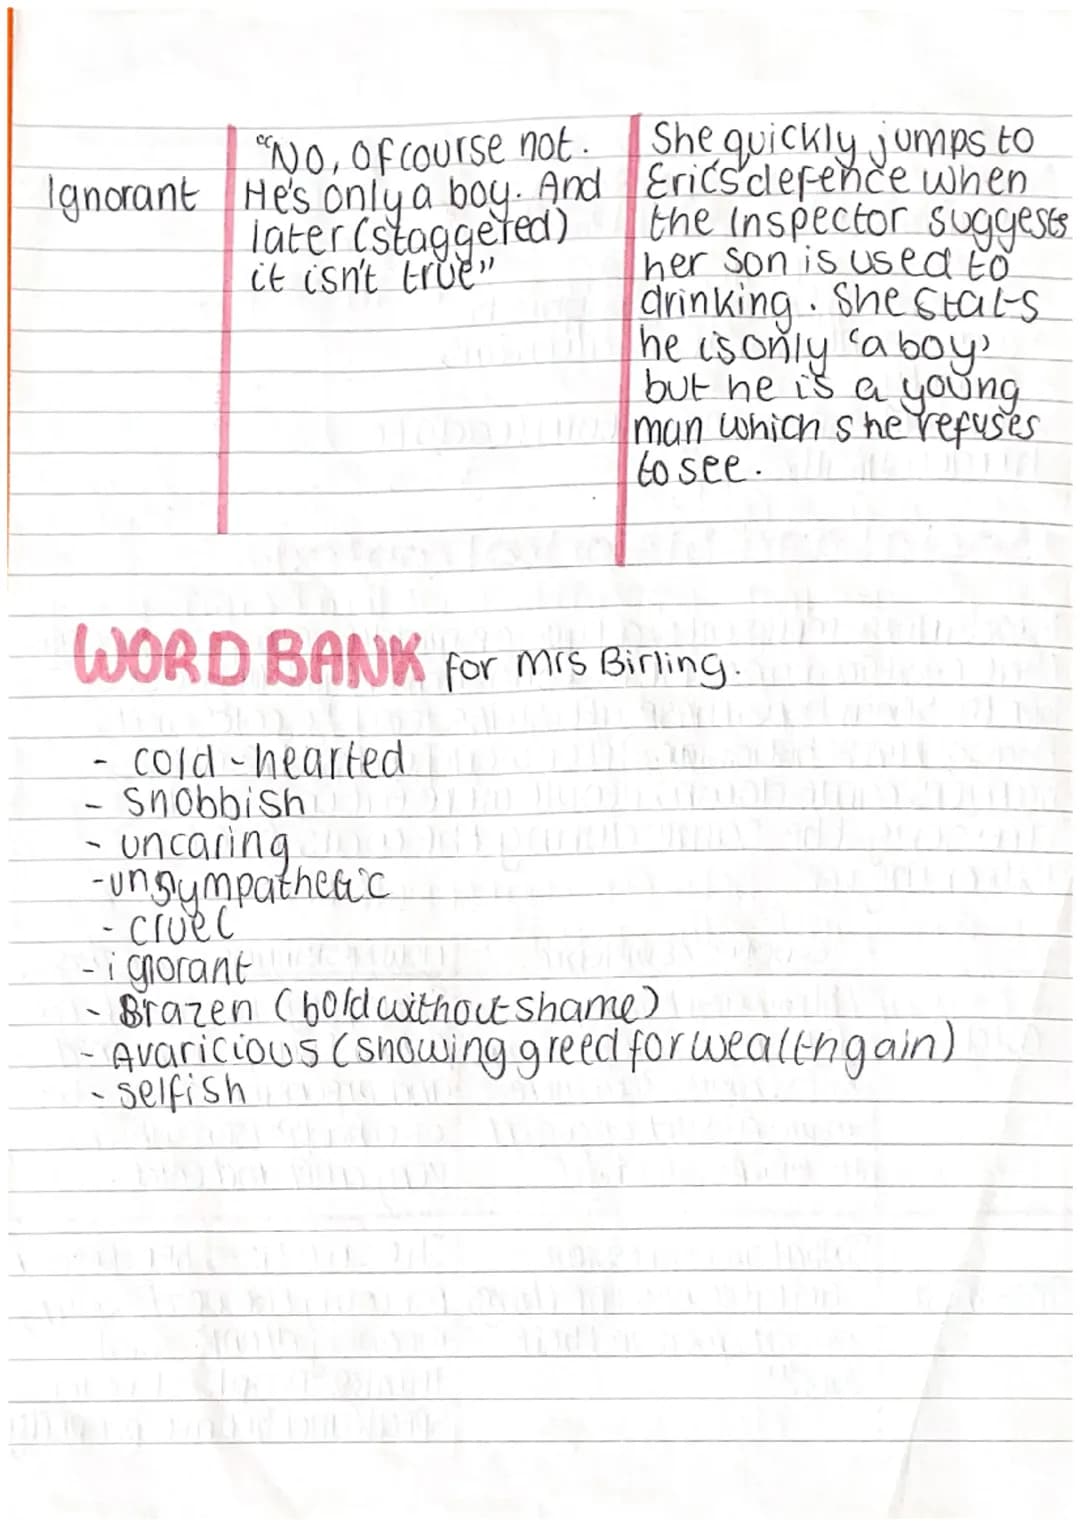 Ignorant
"No, of course not.
He's only a boy. And
later (staggered)
it isn't true"
She quickly jumps to
Eric's defence when
the Inspector suggests
her son is used to
drinking. She stats
he is only 'a boy'
but he is a young
man which she refuses
to see.
WORD BANK for Mrs Birling.
- cold-hearted
- snobbish
- uncaring
- unsympathetic
- cruel
- ignorant
- Brazen (bold without shame)
- Avaricious (showing greed for wealth gain)
- selfish